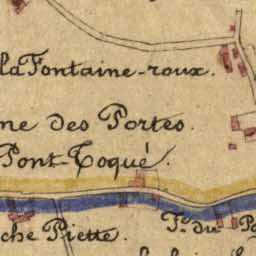 la Fontaine-roux.
ne des Portes.
Pont-Toqué.
Fg. du Po
che Piette.